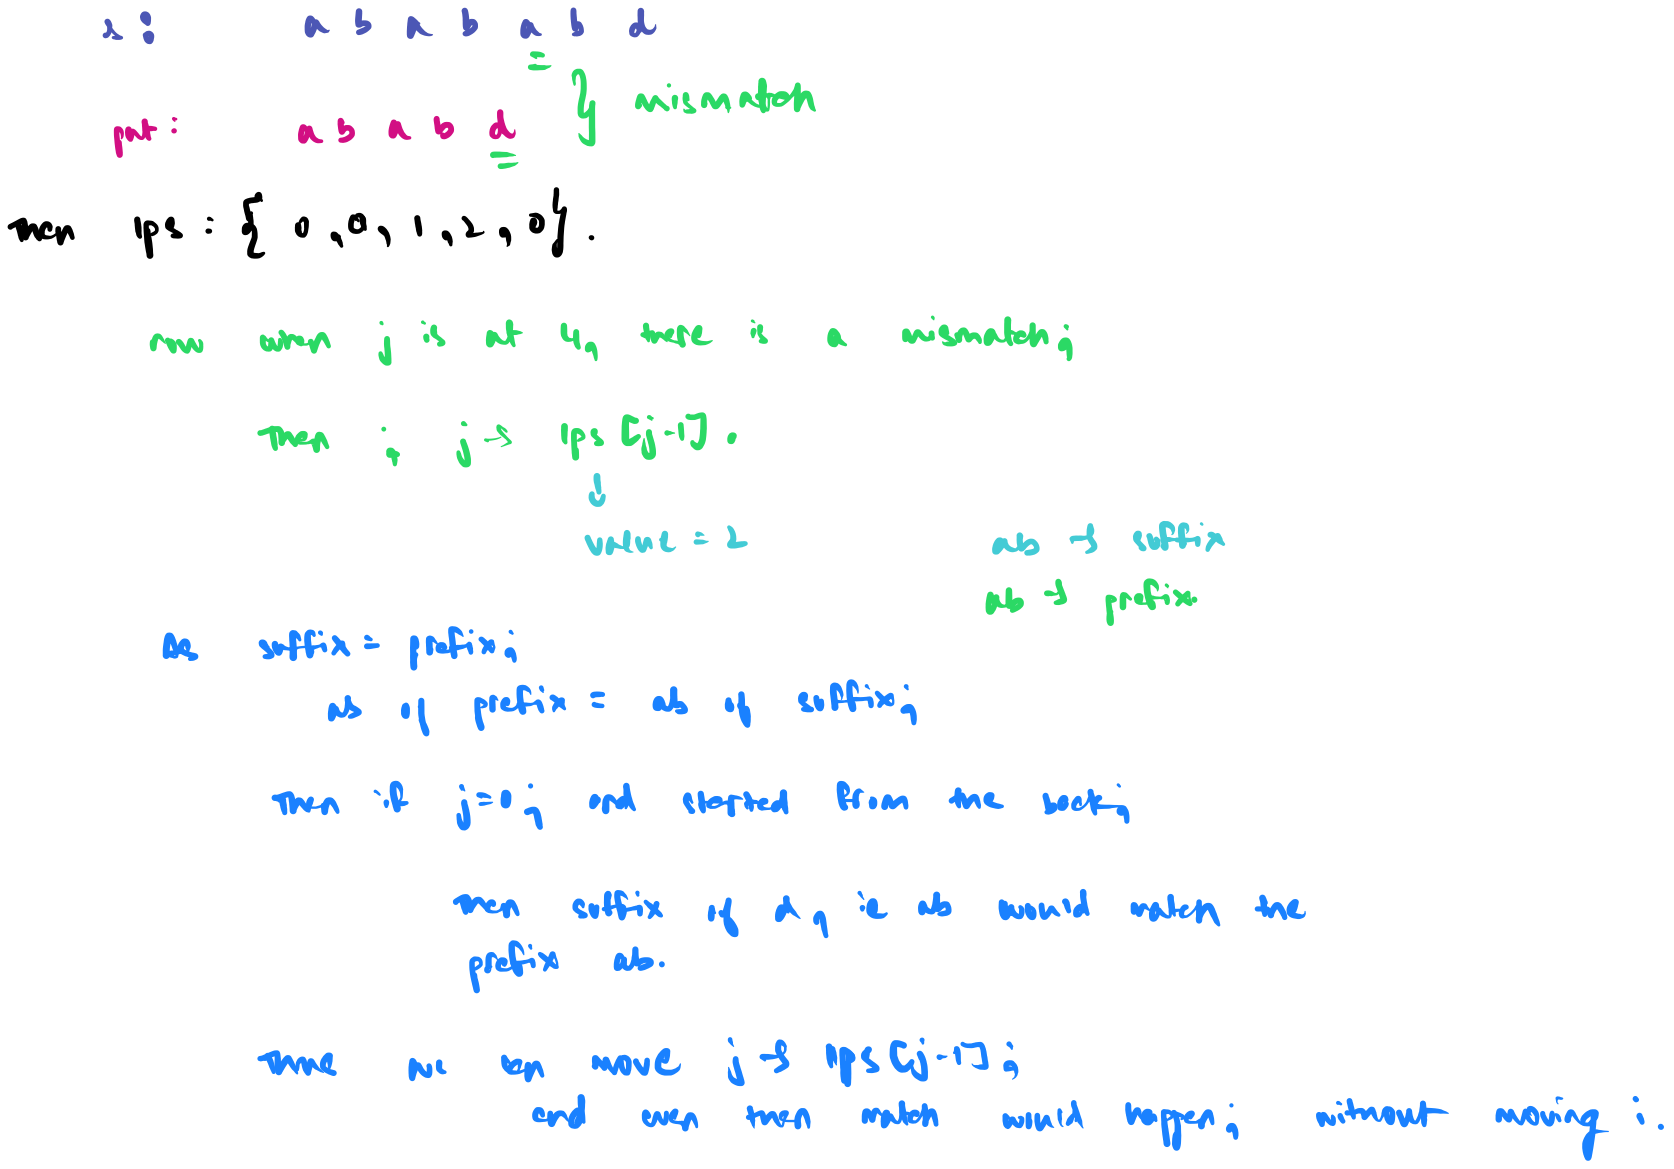 s : a b a b a b d
} mismatch
pat : a b a b d
Then lps : { 0 , 0 , 1 , 2 , 0 } .
now when j is at 4, there is a mismatch;
Then ; j → lps [j-1] .
↓
value = 2
ab → suffix
ab → prefix.
As suffix = prefix;
ab of prefix = ab of suffix;
Then if j=0; and started from the back;
Then suffix of d, ie ab would match the
prefix ab.
we can move j → lps [j-1] ;
and even then match would happen; without moving i.